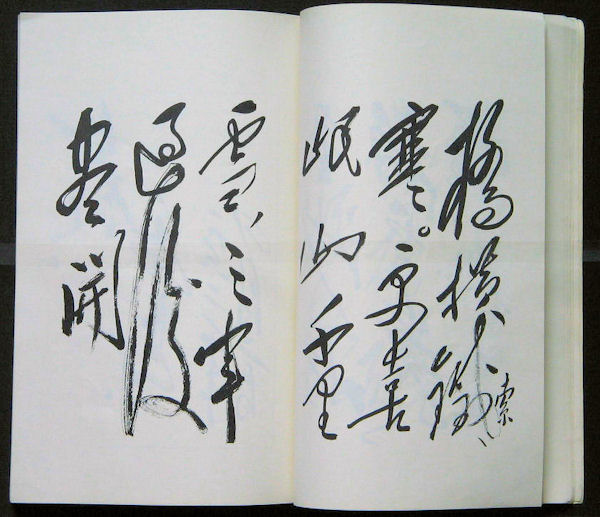 橋橫鐵索
寒。更喜
岷山千里
雪,三軍
過後
盡開